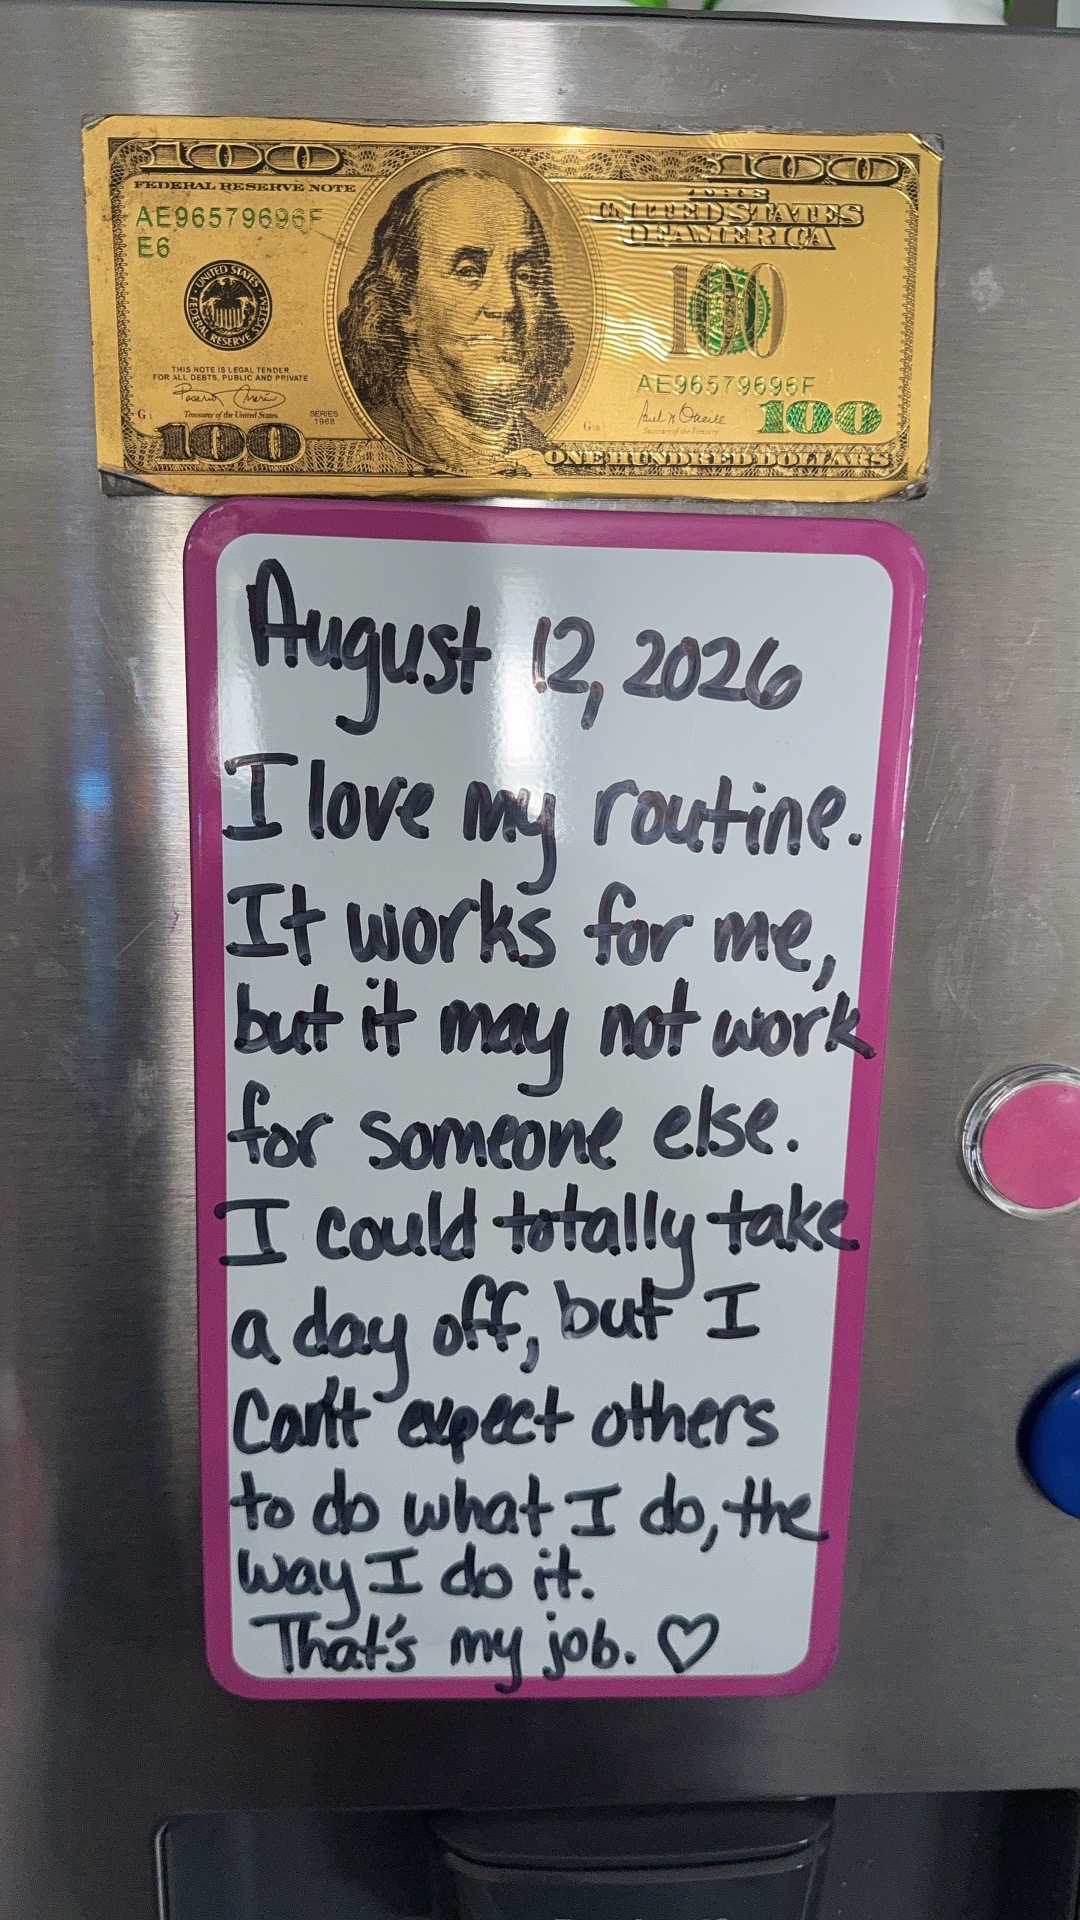 100 100
FEDERAL RESERVE NOTE
THE
UNITED STATES
OF AMERICA
AE96579696F
E6
UNITED STATES
FEDERAL RESERVE
100
THIS NOTE IS LEGAL TENDER
FOR ALL DEBTS, PUBLIC AND PRIVATE
AE96579696F
Treasurer of the United States.
SERIES
1968
Secretary of the Treasury
100 100
ONE HUNDRED DOLLARS
August 12, 2026
I love my routine.
It works for me,
but it may not work
for someone else.
I could totally take
a day off, but I
Can't expect others
to do what I do, the
way I do it.
That's my job. ♡